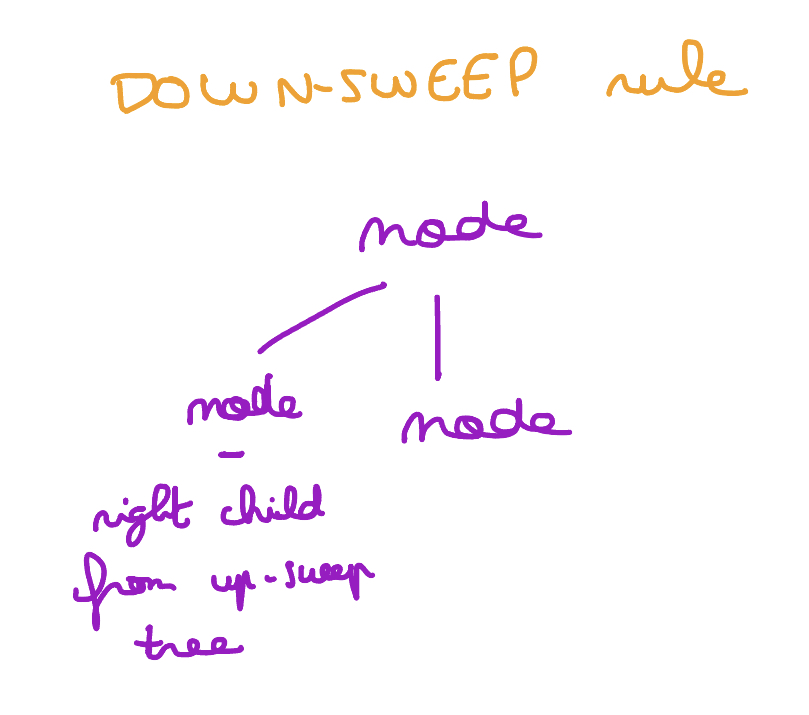 DOWN-SWEEP rule
node
node
node
-
right child
from up-sweep
tree